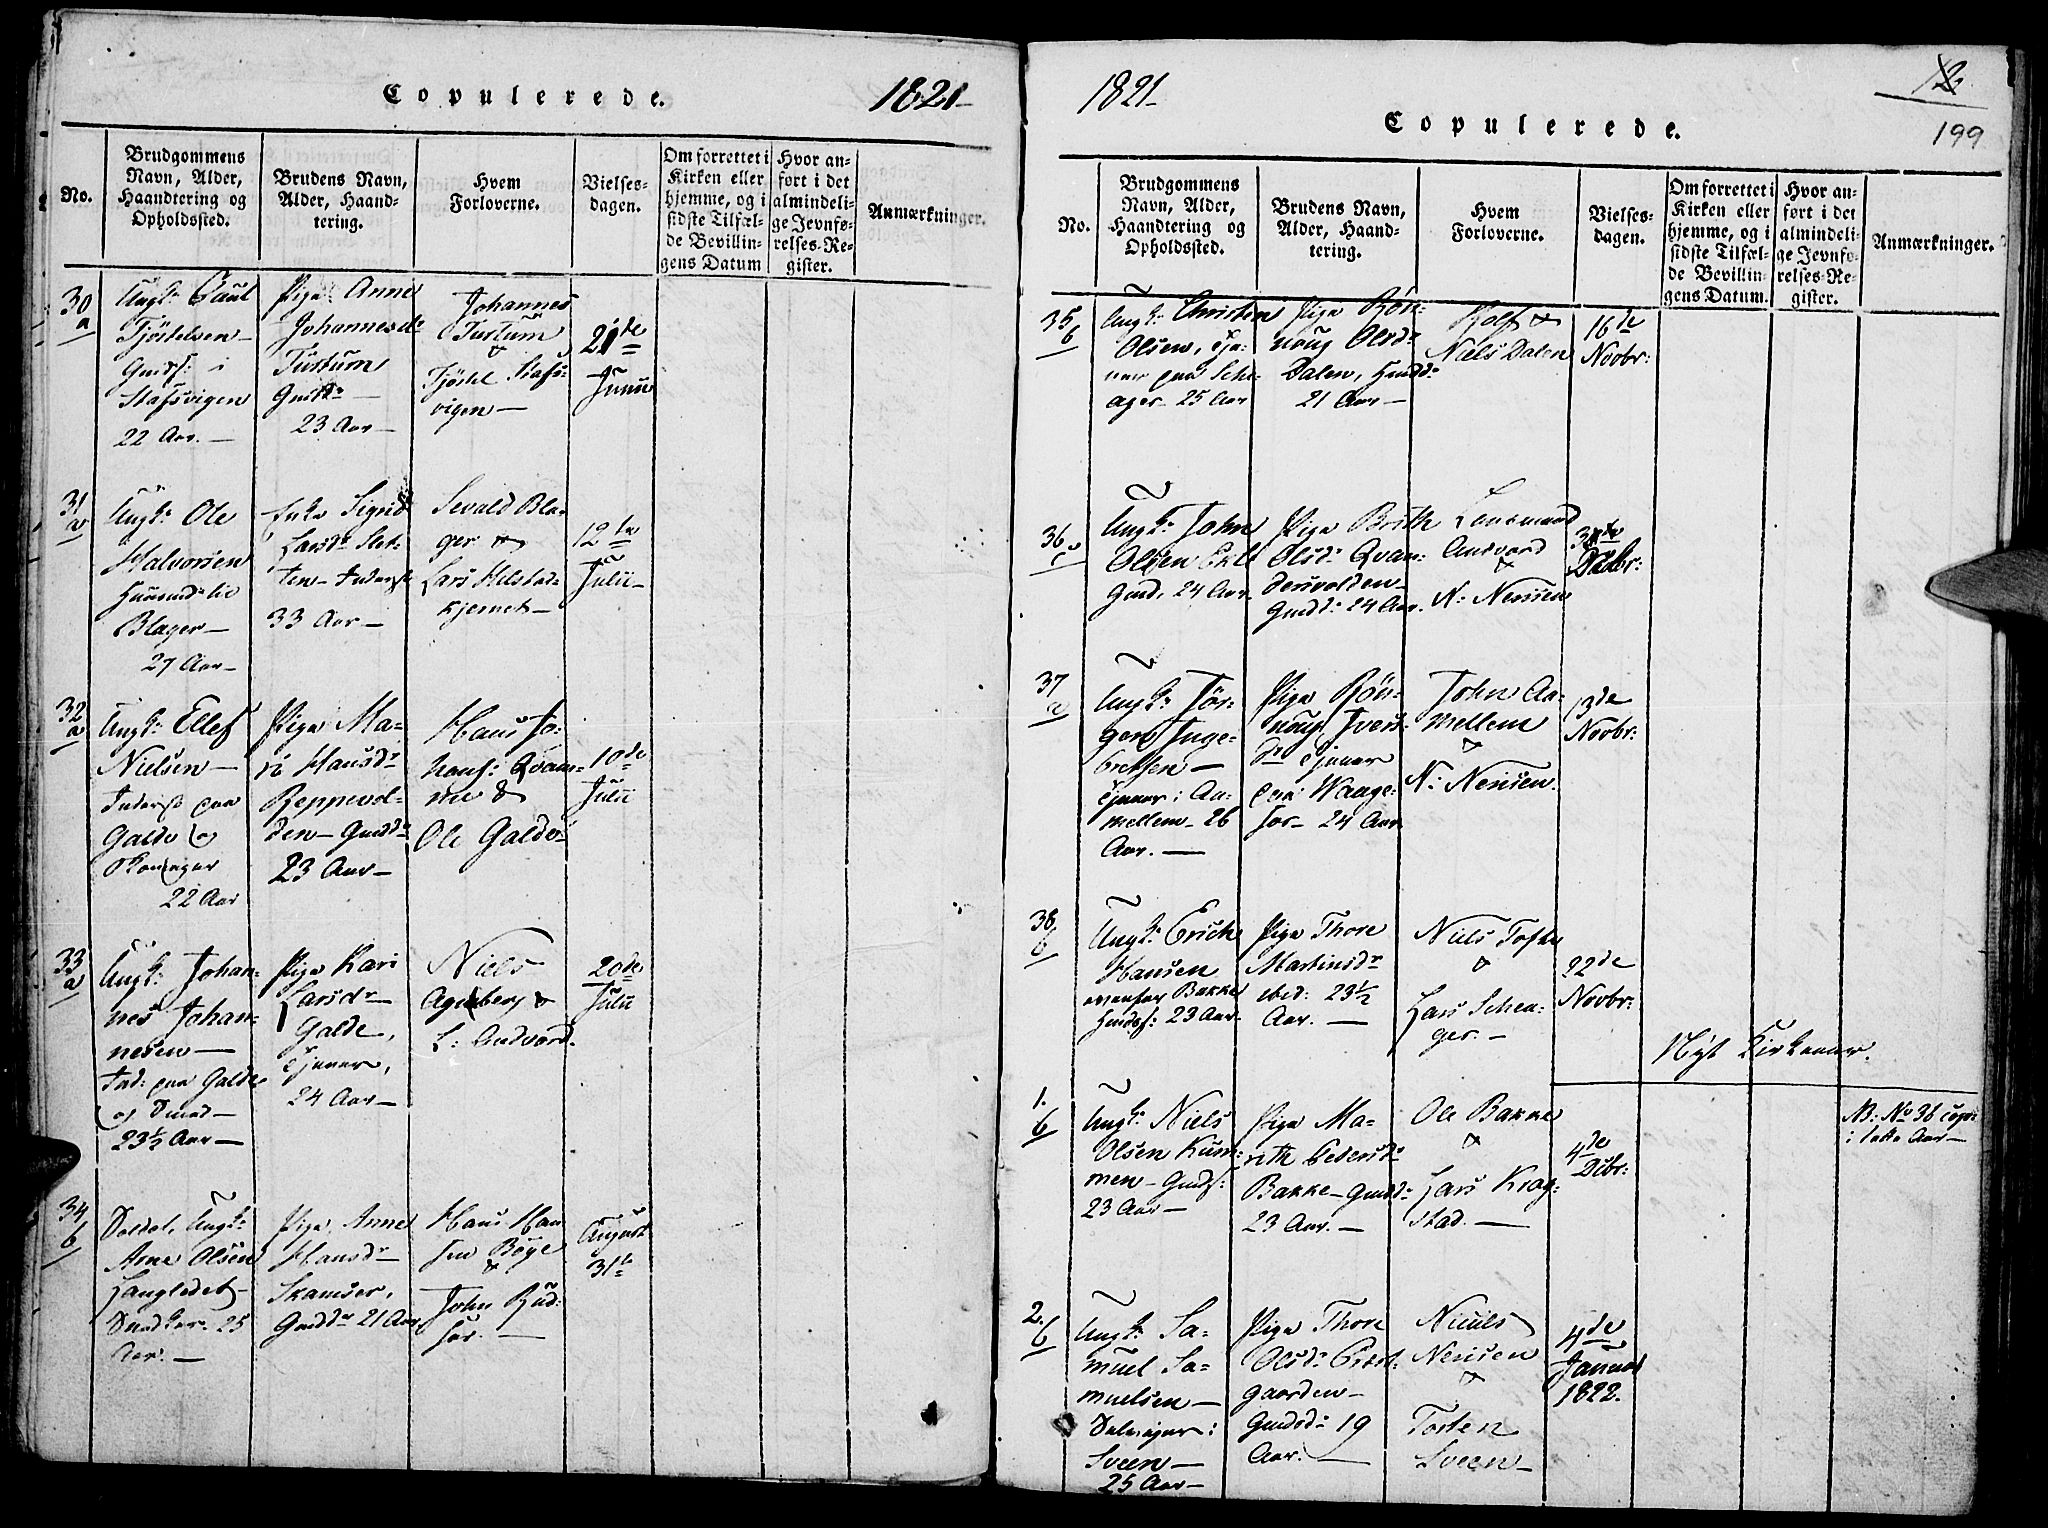 Copulerede.
1821
No.
Brudgommens
Navn, Alder,
Haandtering og
Opholdssted.
Brudens Navn,
Alder, Haand-
tering.
Hvem
Forloverne.
Vielses-
dagen.
Om forrettet i
Kirken eller
hjemme, og i
sidste Tilfæl-
de Bevillin-
gens Datum
Hvor an-
ført i det
almindeli-
ge Jevnfø-
relses-Re-
gister.
Anmærkninger.
30
a
Ungk: Poul
Tjöstelsen
Gmdf: i
Stafsvigen
22 Aar.
Pige Anne
Johannesdr
Turtum
23 Aar
Johannes
Turtum
&
Tjöstel Stafs-
vigen
21de
Junii
31
a
Ungk: Ole
Halvorsen
Blager
27 Aar
Enke Sigrid
Larsdr
33 Aar
Sevald Bla-
ger &
Lars
12te
Julii
32
a
Ungk: Ellef
Nielsen
Inderst paa
Galde
22 Aar
Pige Ma-
ri Hansdr
Reppevol-
den
23 Aar
Hans Jo-
hans: Qvam-
me &
Ole Galde
10de
Julii
33
a
Ungk: Johan-
nes Johan-
nesen
Ind: paa Galde
og Smed
23½ Aar
Pige Kari
Larsdr
Galde,
tjener,
24 Aar
Niels
&
L: Andvord.
20de
Julii
34
b
Soldat, Ungk:
Arne Olsen
25
Aar.
Pige Anne
Hansdr
Skamser,
21 Aar
Hans Han
sen Böye
&
John Rud-
ser.
August
31te
1821
12
199
Copulerede.
No.
Brudgommens
Navn, Alder,
Haandtering og
Opholdssted.
Brudens Navn,
Alder, Haand-
tering.
Hvem
Forloverne.
Vielses-
dagen.
Om forrettet i
Kirken eller
hjemme, og i
sidste Tilfæl-
de Bevillin-
gens Datum.
Hvor an-
ført i det
almindeli-
ge Jevnfø-
relses-Re-
gister.
Anmærkninger.
35
b
Ungk: Christen
Olsen, tje-
ner paa Sche-
ager 25 Aar
Pige Rön-
noug Olsdr
Dalen,
21 Aar
Rolf &
Niels Dalen
16de
Novbr:
36
Ungk: John
Olsen
24 Aar.
Pige Brith
Olsdr Qvan-
dersvolden
24 Aar.
Lensmand
Andvord
&
N: Nerisen
Ddbr:
37
a
Ungk: Jör-
gen Inge-
bretsen
tjener i Aa-
mellem 26
Aar.
Pige Rön-
noug Ivers-
dr tjener
paa Waage-
24 Aar
John Aa-
mellem
&
N: Nerisen.
13de
Novbr:
38
b
Ungk: Erich
Hansen
Bakke
23 Aar.
Pige Thore
Martinsdr
ibid: 23½
Aar.
Niels Tofte
&
Lars Schea-
ger.
22de
Novbr:
Nyt Kirkeaar.
1.
b
Ungk: Niels
Olsen Kum-
men Gmdf:
23 Aar
Pige Ma-
rith Pedersdr
Bakke
23 Aar.
Ole Bakke
&
Lars Krog-
stad.
4de
Dcbr:
NB: No 36 cop:
i dette Aar
2.
b
Ungk: Sa-
muel Sa-
muelsen
i
Sveen
25 Aar
Pige Thore
Olsdr Præst-
gaarden
19
Aar.
Niels
Nerisen
&
Tosten
Sveen
4de
Januar
1822.